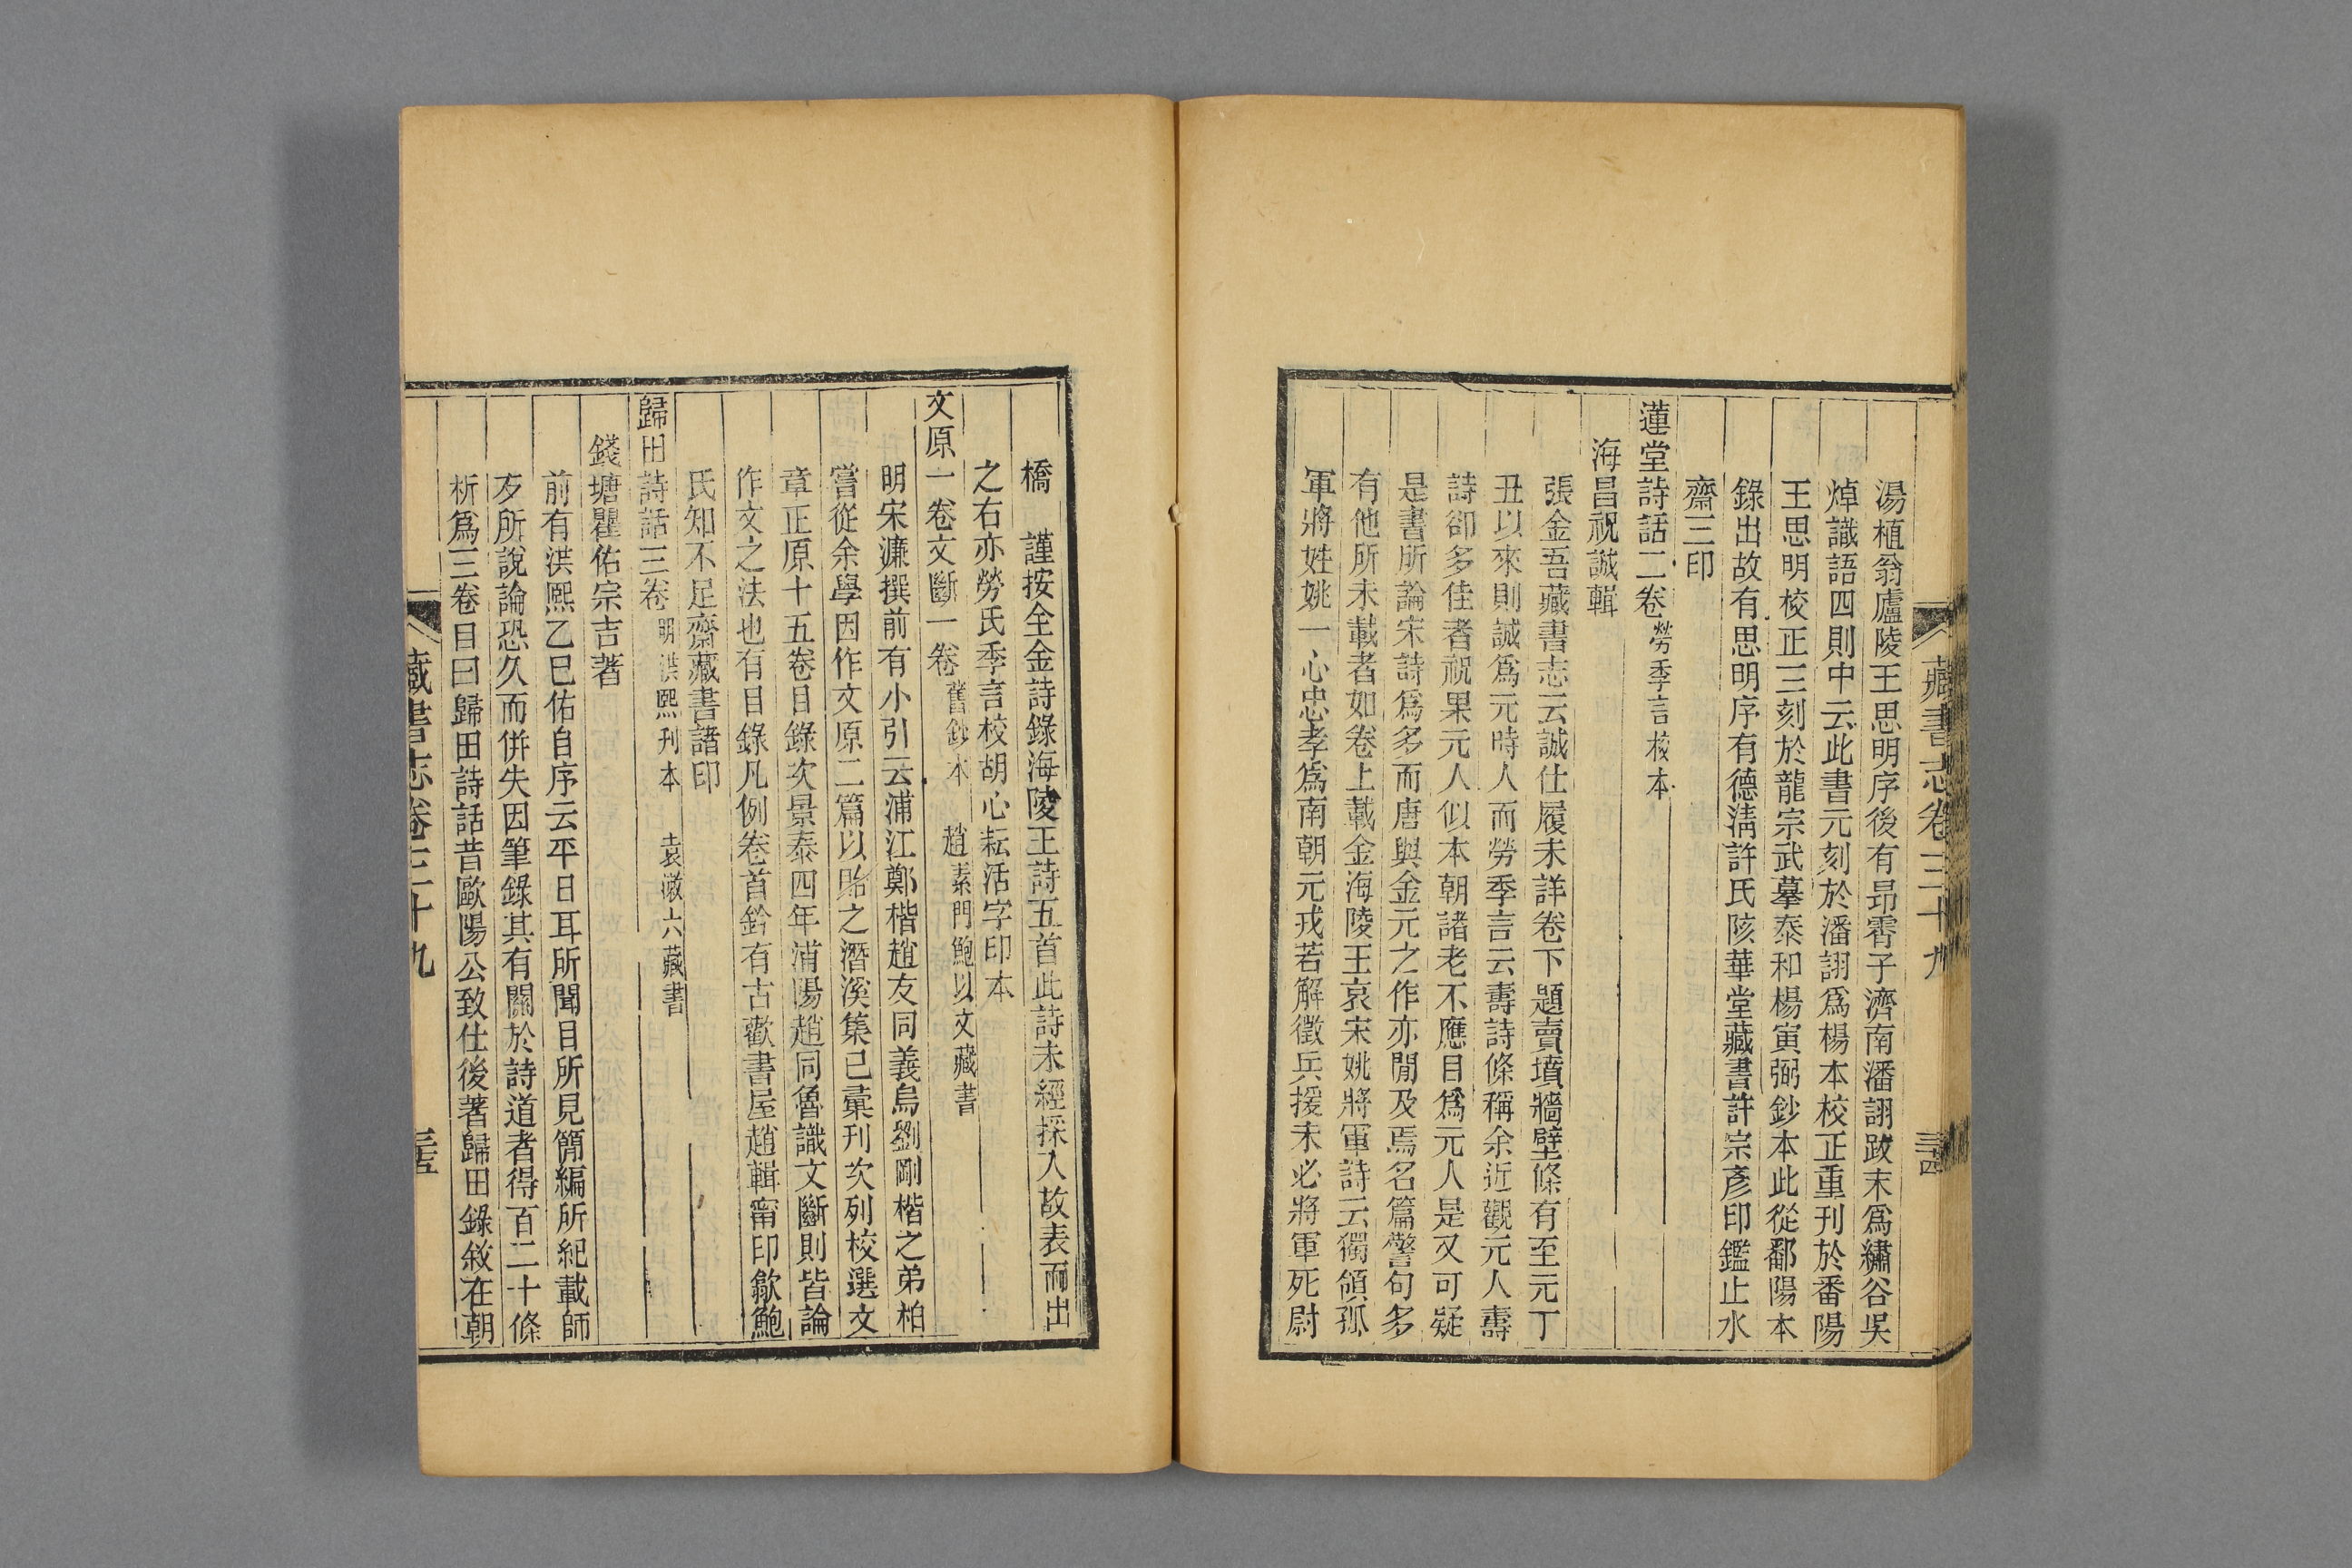 藏書志卷三十九
三十四
湯植翁廬陵王思明序後有昻霄子濟南潘詡跋末爲繡谷吳
焯識語四則中云此書元刻於潘詡爲楊本校正重刊於番陽
王思明校正三刻於龍宗武摹泰和楊寅弼鈔本此從鄱陽本
錄出故有思明序有德淸許氏陔華堂藏書許宗彥印鑑止水
齋三印
蓮堂詩話二卷 勞季言校本
海昌祝誠輯
張金吾藏書志云誠仕履未詳卷下題賣墳牆壁條有至元丁
丑以來則誠爲元時人而勞季言云壽詩條稱余近觀元人壽
詩卻多佳者祝果元人似本朝諸老不應目爲元人是又可疑
是書所論宋詩爲多而唐與金元之作亦閒及焉名篇警句多
有他所未載者如卷上載金海陵王哀宋姚將軍詩云獨領孤
軍將姓姚一心忠孝爲南朝元戎若解徵兵援未必將軍死尉
橋 謹按全金詩錄海陵王詩五首此詩未經採入故表而出
之右亦勞氏季言校胡心耘活字印本
文原一卷文斷一卷 舊鈔本 趙素門鮑以文藏書
明宋濂撰前有小引云浦江鄭楷趙友同義烏劉剛楷之弟柏
嘗從余學因作文原二篇以貽之潛溪集已彙刊次列校選文
章正原十五卷目錄次景泰四年浦陽趙同魯識文斷則皆論
作文之法也有目錄凡例卷首鈐有古歡書屋趙輯甯印歙鮑
氏知不足齋藏書諸印
歸田詩話三卷 明洪熙刊本 袁漱六藏書
錢塘瞿佑宗吉著
前有洪熙乙巳佑自序云平日耳所聞目所見簡編所紀載師
友所說論恐久而併失因筆錄其有關於詩道者得百二十條
析爲三卷目曰歸田詩話昔歐陽公致仕後著歸田錄敘在朝
藏書志卷三十九
三十五